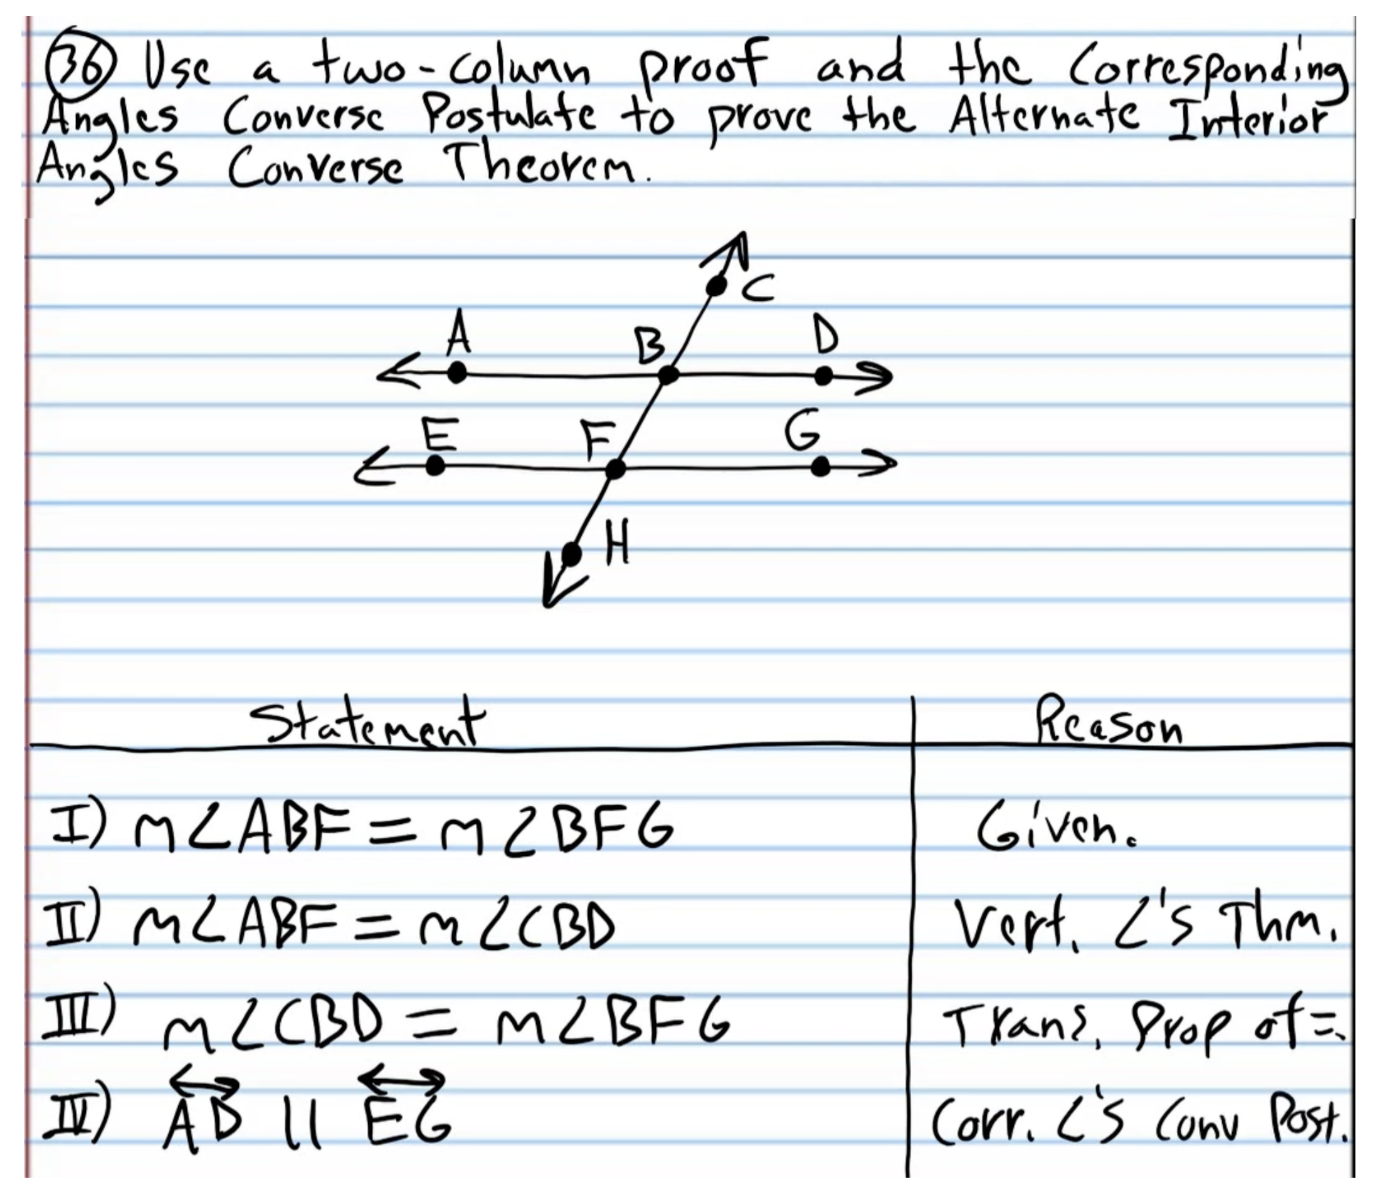 36 Use a two-column proof and the Corresponding
Angles Converse Postulate to prove the Alternate Interior
Angles Converse Theorem.
C
A B D
E F G
H
Statement Reason
I) m∠ABF = m∠BFG Given.
II) m∠ABF = m∠CBD Vert. ∠'s Thm.
III) m∠CBD = m∠BFG Trans. Prop of =.
IV) AD || EG Corr. ∠'s Conv Post.